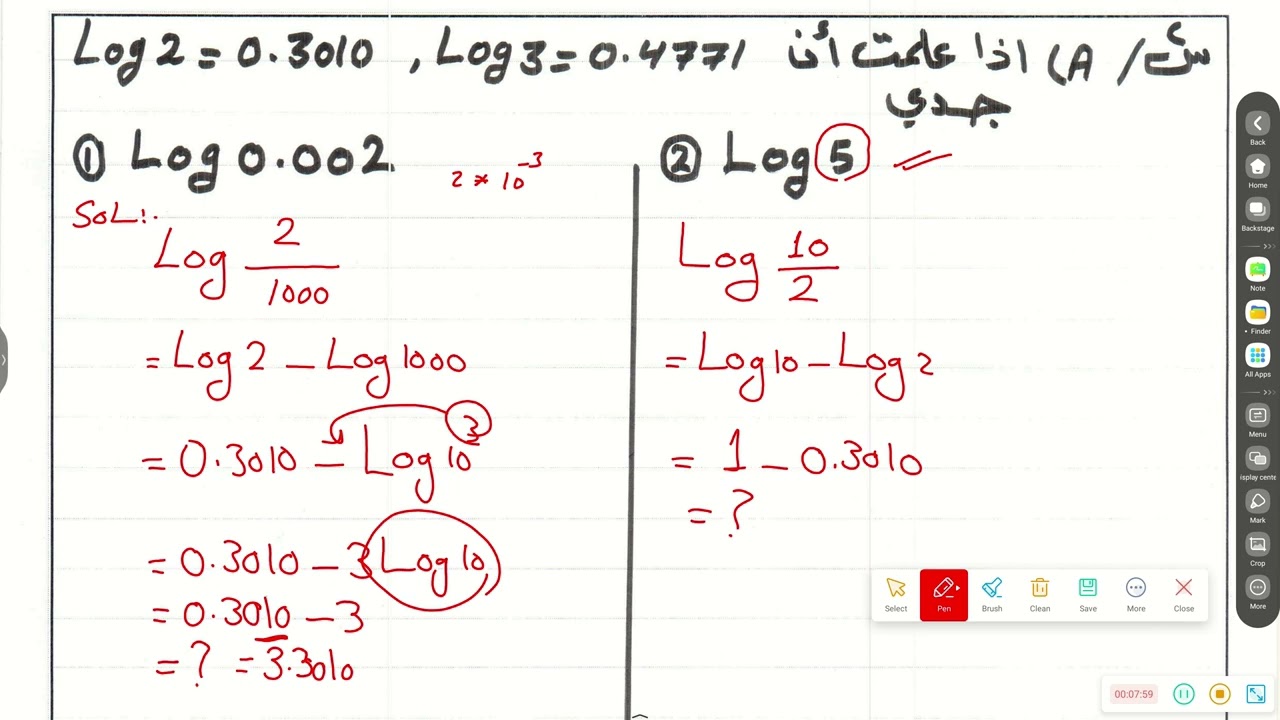 Log 2 = 0.3010 , Log 3 = 0.4771 س/ A) اذا علمت أن
جدي
① Log 0.002
2 * 10^-3
SoL:.
Log 2/1000
= Log 2 – Log 1000
= 0.3010 – Log 10^3
= 0.3010 – 3 Log 10
= 0.3010 – 3
= ? = 3.3010
② Log 5
Log 10/2
= Log 10 – Log 2
= 1 – 0.3010
= ?
Select Pen Brush Clean Save More Close
00:07:59
Back
Home
Backstage
Note
• Finder
All Apps
Menu
isplay cente
Mark
Crop
More